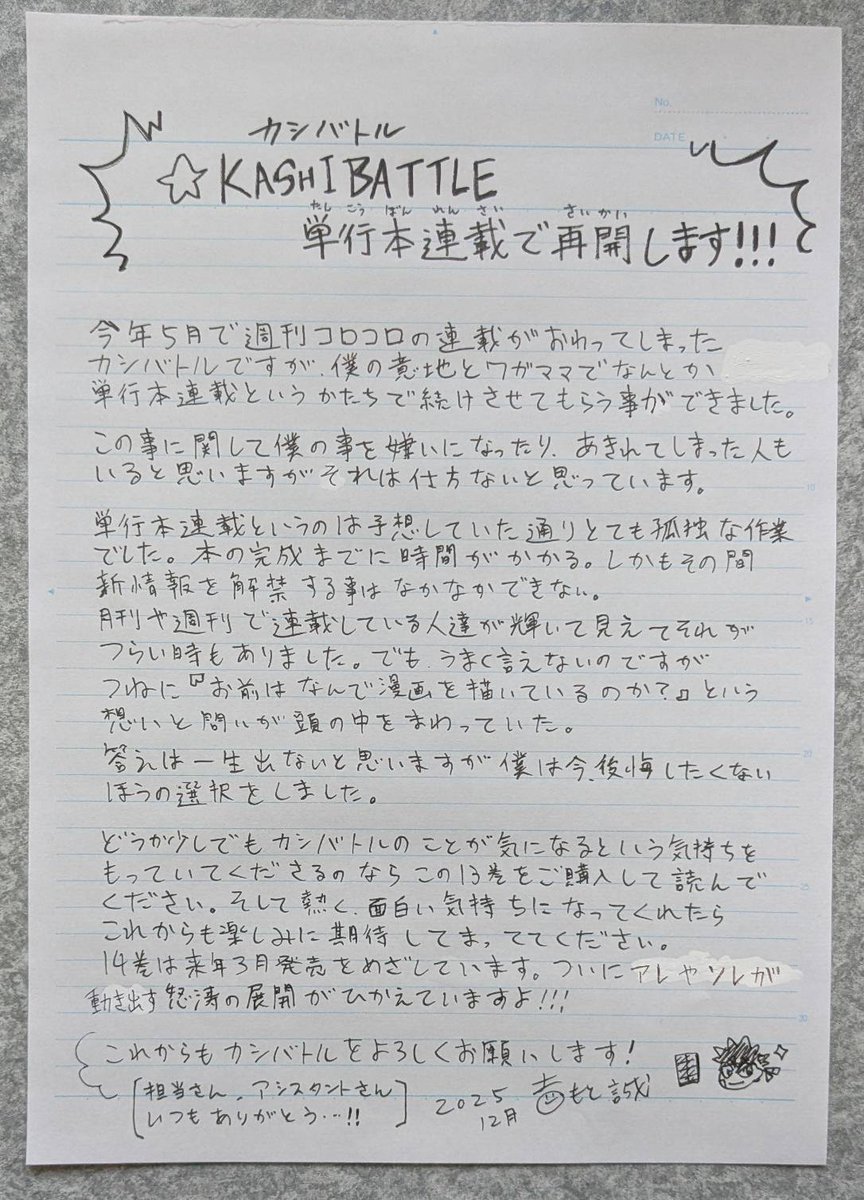 No.
DATE
カシバトル
☆KASHIBATTLE
たんこうぼんれんさい さいかい
単行本連載で再開します!!!
今年5月で週刊コロコロの連載がおわってしまった
カシバトルですが、僕の意地とワガママでなんとか
単行本連載というかたちで続けさせてもらう事ができました。
この事に関して僕の事を嫌いになったり、あきれてしまった人も
いると思いますがそれは仕方ないと思っています。
単行本連載というのは予想していた通りとても孤独な作業
でした。本の完成までに時間がかかる。しかもその間
新情報を解禁する事はなかなかできない。
月刊や週刊で連載している人達が輝いて見えてそれが
つらい時もありました。でも、うまく言えないのですが
つねに『お前はなんで漫画を描いているのか?』という
想いと問いが頭の中をまわっていた。
答えは一生出ないと思いますが僕は今、後悔したくない
ほうの選択をしました。
どうか少しでもカシバトルのことが気になるという気持ちを
もっていてくださるのならこの13巻をご購入して読んで
ください。そして熱く、面白い気持ちになってくれたら
これからも楽しみに期待してまっててください。
14巻は来年3月発売をめざしています。ついにアレやソレが
動き出す怒涛の展開がひかえていますよ!!!
これからもカシバトルをよろしくお願いします!
[担当さん、アシスタントさん
いつもありがとう…!!]
2025
12月
もと誠